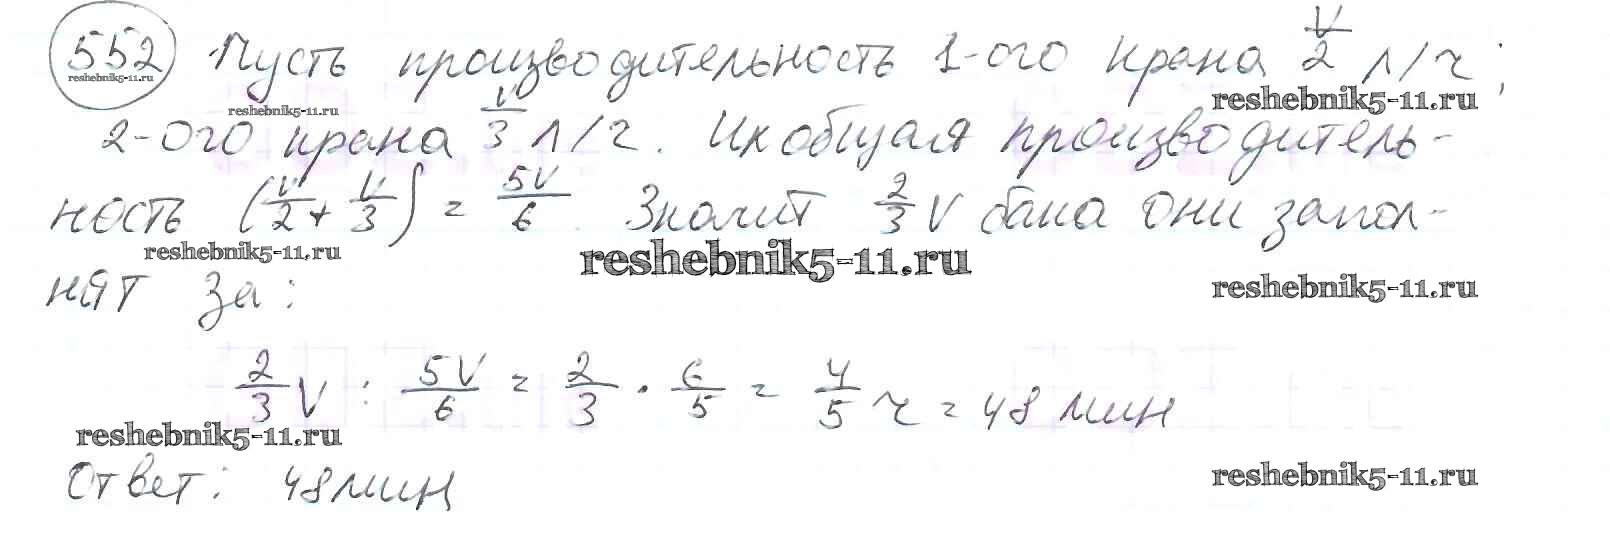 552 Пусть производительность 1-ого крана V/2 л/ч;
reshebnik5-11.ru
reshebnik5-11.ru
reshebnik5-11.ru
2-ого крана V/3 л/ч. Их общая производитель-
ность (V/2 + V/3) = 5V/6. Значит 2/3 V бака они запол-
reshebnik5-11.ru
reshebnik5-11.ru
reshebnik5-11.ru
нят за:
2/3 V : 5V/6 = 2/3 · 6/5 = 4/5 ч = 48 мин
reshebnik5-11.ru
reshebnik5-11.ru
Ответ: 48 мин